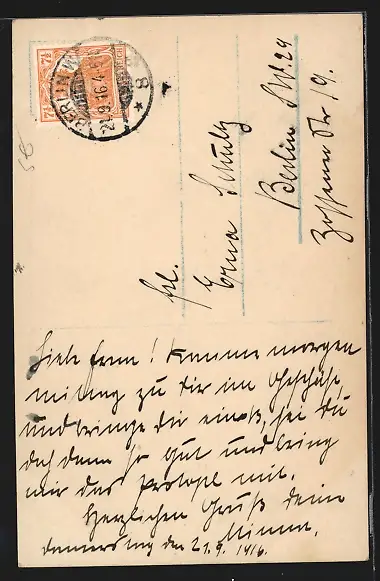 7½ 7½
BERLIN W
21.9.16.4-5
* 8
Frl.
Erna Schultz
Berlin S.W. 29
Zossener Str. 19.
Liebe Erna! Komme morgen
mittag zu Dir im Geschäft,
und bringe Dir etwas, sei Du
doch dann so gut und bring
mir das mit.
Herzlichen Gruß deine
Minna.
Donnerstag den 21.9.1916.